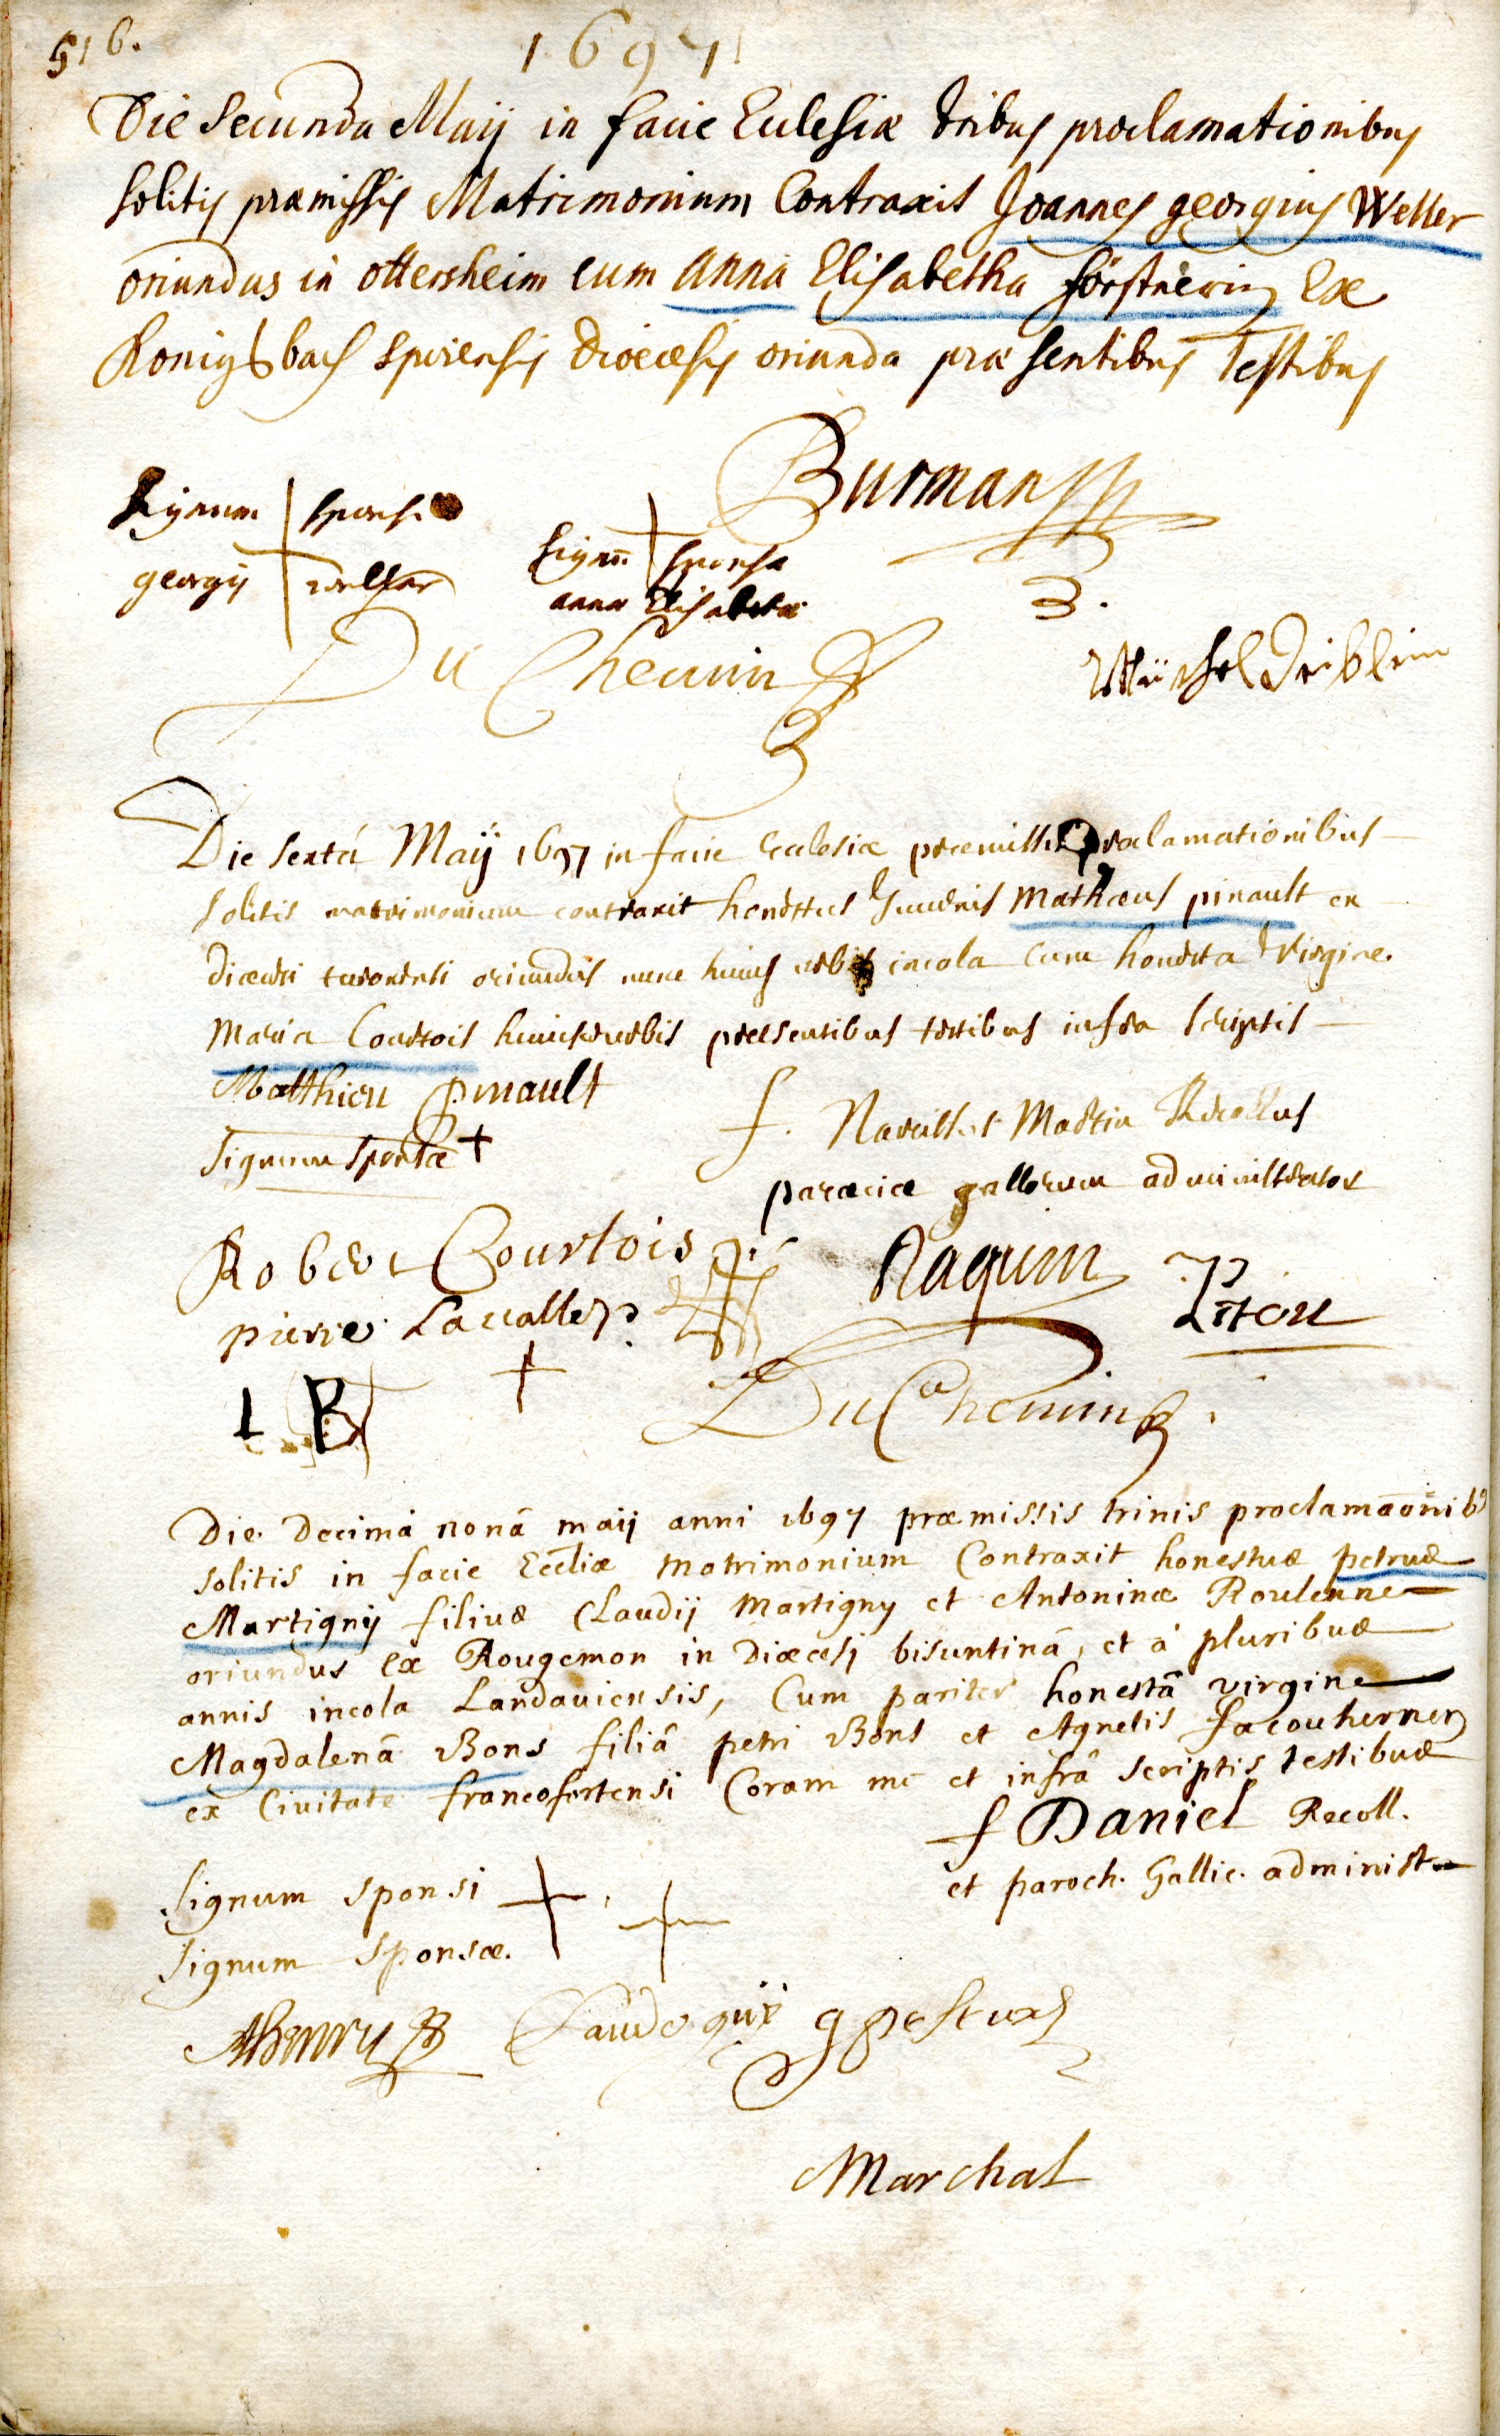 516.
1697
Die Secunda Maij in facie Eclesiæ tribus proclamationibus
solitis præmissis Matrimonium Contraxit Joannes georgius Weller
oriundus in ottersheim cum anna Elisabetha förstnerin Ex
Konigsbach spirensis dioecesis oriunda præsentibus Testibus
Burman
Signum sponsi
georgij
Signū sponsæ
anna Elisabetæ
3.
Du Chemin
Die sextâ Maÿ 1697 in facie ecclesiæ præmissis proclamationibus
solitis matrimonium contraxit honestus Juvenis mathæus pinault ex
diæcesi turonensi oriundus nunc huius urbis incola cum honesta Virgine
Maria Courtois huiusce urbis præsentibus testibus infra scriptis
Matthieu Pinault
f. Narcissus Martin Recollectus
Signum sponsæ +
paræciæ gallorum administrator
Robert Courtois
Naquin
Piton
pierre Lavallez
+
Du Chemin
Die decimâ nonâ maij anni 1697 præmissis trinis proclamãonib9
solitis in facie Eccliæ Matrimonium Contraxit honestus petrus
Martignij filius Claudij Martigny et Antoninæ Roulenne
oriundus ex Rougemon in Diœcesi bisuntinâ, et a pluribus
annis incola Landauiensis, Cum pariter honestâ virgine
Magdalenâ Bons filiâ petri Bons et Agnetis
ex Civitate francofortensi Coram me et infrâ scriptis testibus
f Daniel Recoll.
et paroch. Gallic. administ
Signum sponsi +
+
Signum Sponsæ.
Marchal